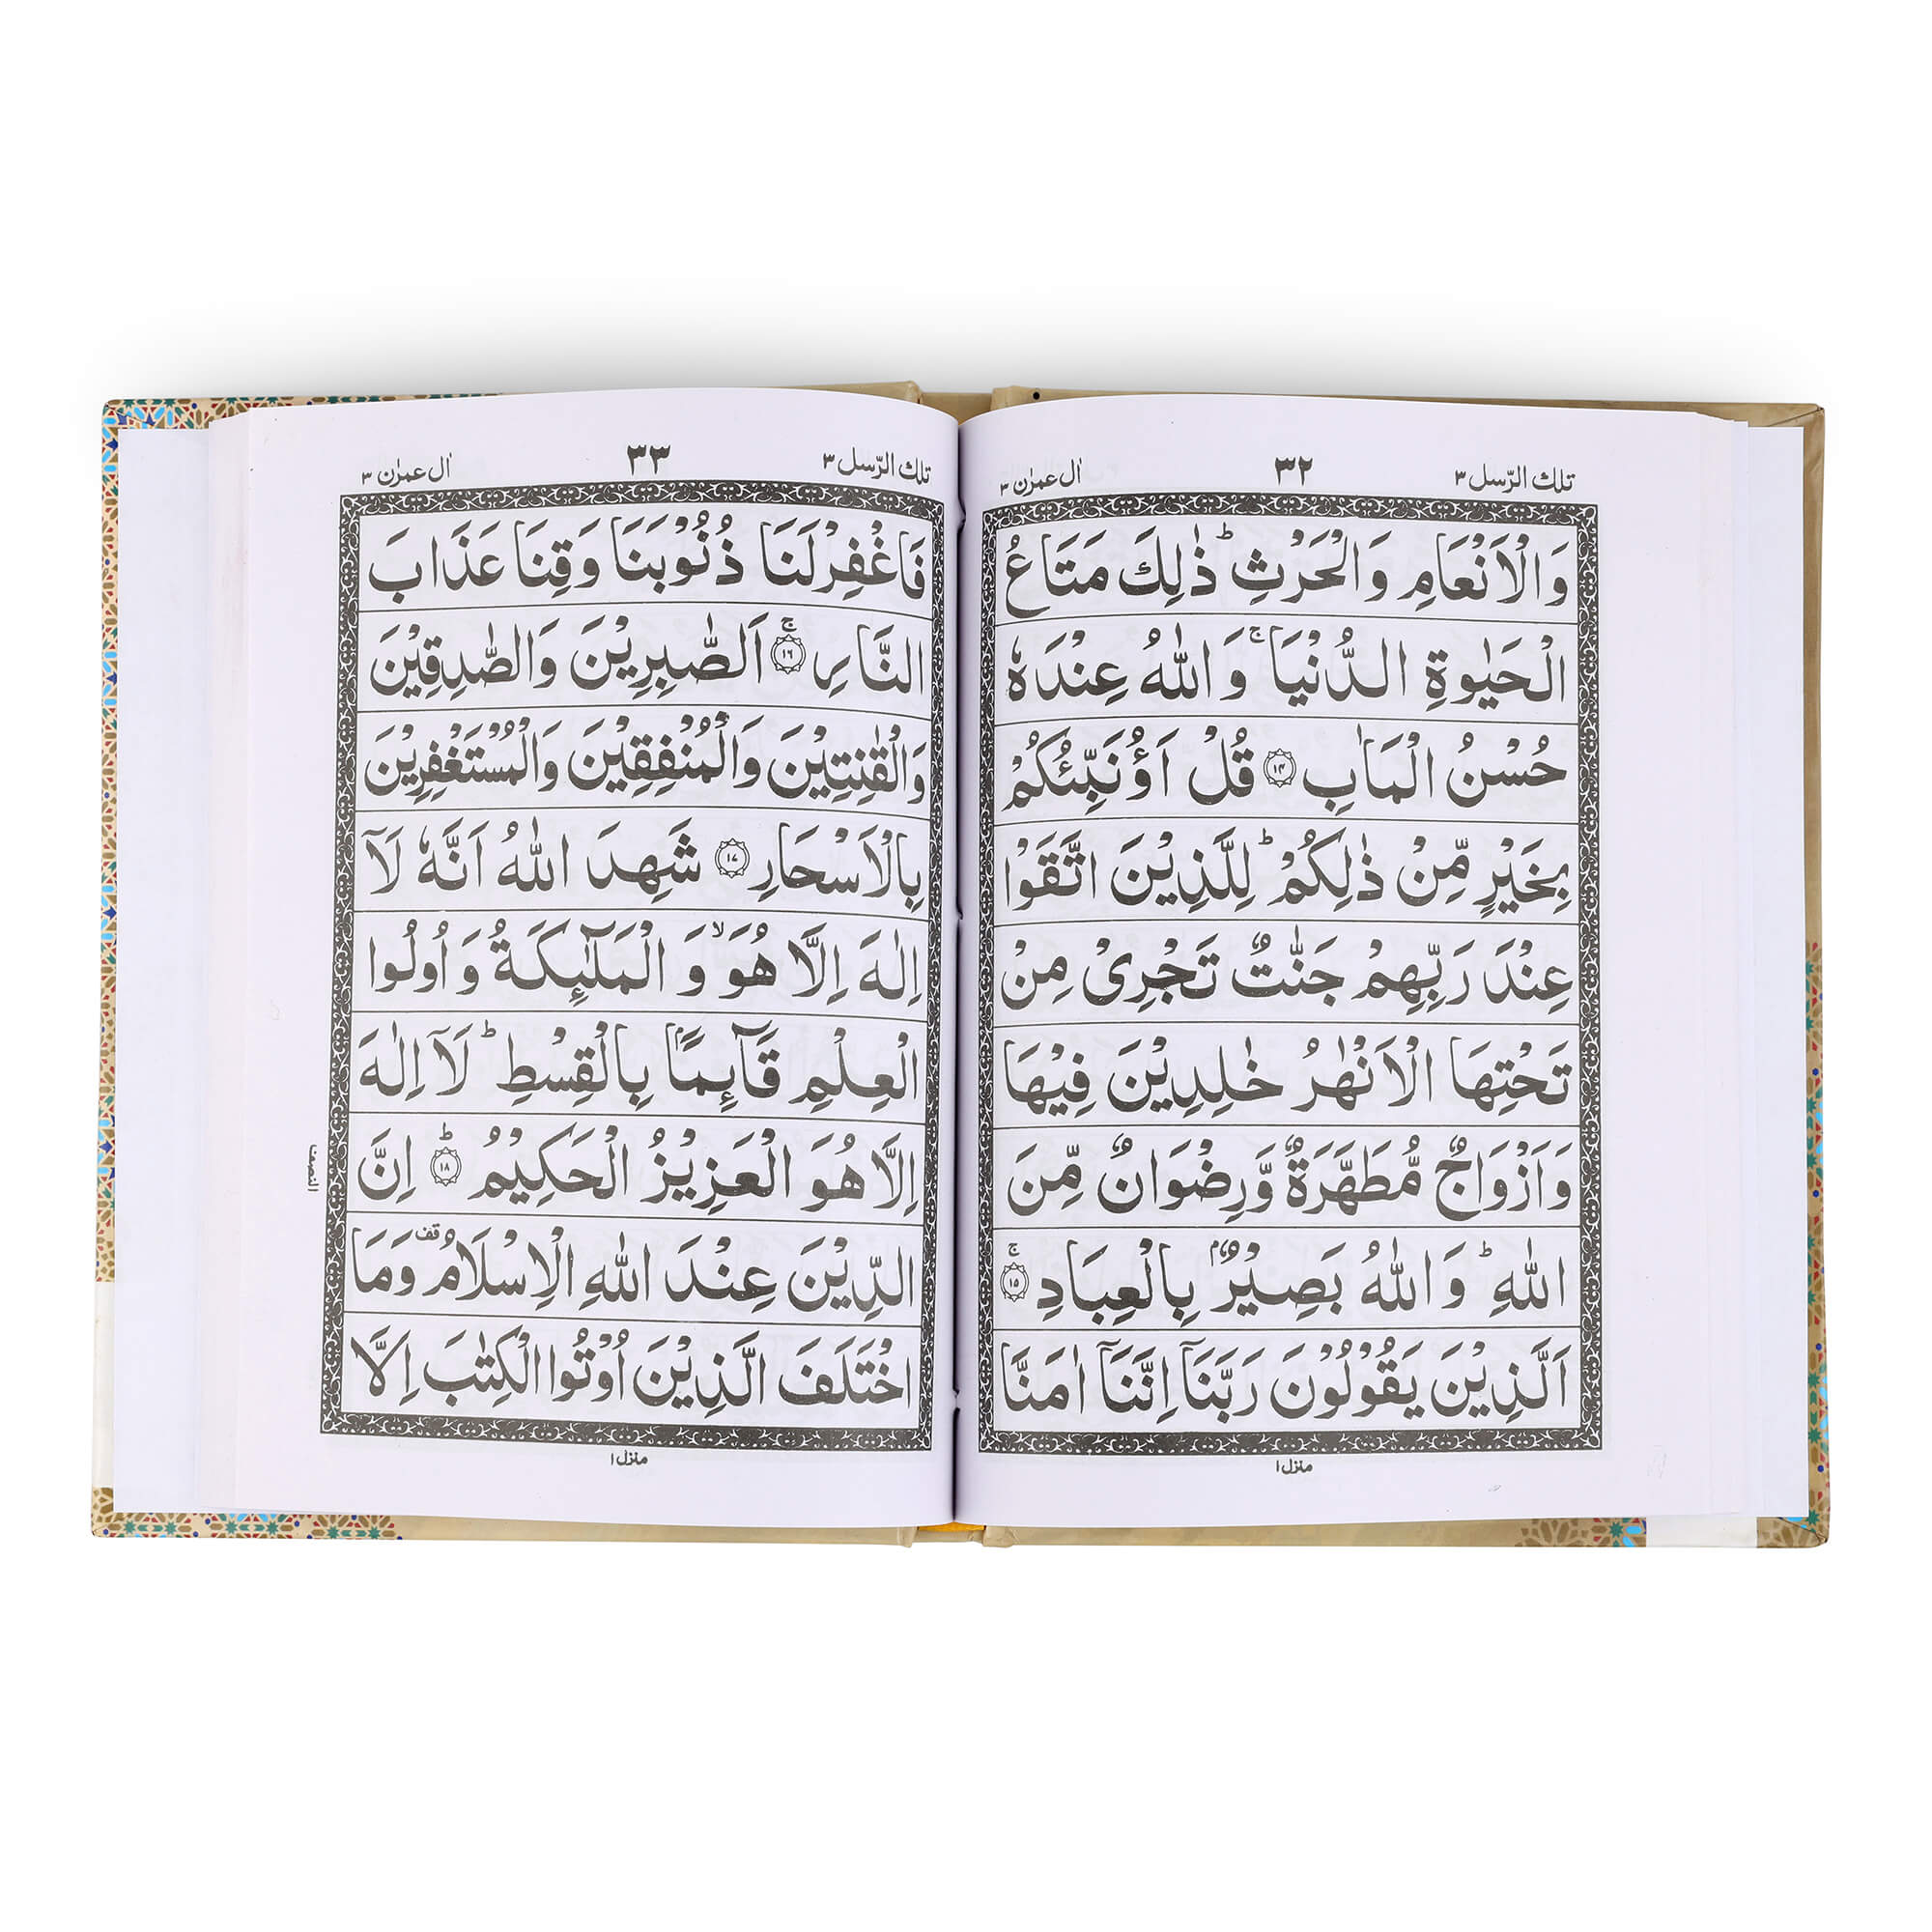 تلك الرّسل ٣
٣٢
اٰل عمرٰن ٣
وَالْاَنْعَامِ وَالْحَرْثِ ؕ ذٰلِكَ مَتَاعُ
الْحَيٰوةِ الدُّنْيَا ۚ وَاللّٰهُ عِنْدَهٗ
حُسْنُ الْمَاٰبِ ۝۱۴ قُلْ اَؤُنَبِّئُكُمْ
بِخَيْرٍ مِّنْ ذٰلِكُمْ ؕ لِلَّذِيْنَ اتَّقَوْا
عِنْدَ رَبِّهِمْ جَنّٰتٌ تَجْرِيْ مِنْ
تَحْتِهَا الْاَنْهٰرُ خٰلِدِيْنَ فِيْهَا
وَاَزْوَاجٌ مُّطَهَّرَةٌ وَّرِضْوَانٌ مِّنَ
اللّٰهِ ؕ وَاللّٰهُ بَصِيْرٌۢ بِالْعِبَادِ ۝۱۵ ۚ
اَلَّذِيْنَ يَقُوْلُوْنَ رَبَّنَاۤ اِنَّنَاۤ اٰمَنَّا
منزل ۱
تلك الرّسل ٣
٣٣
اٰل عمرٰن ٣
فَاغْفِرْ لَنَا ذُنُوْبَنَا وَقِنَا عَذَابَ
النَّارِ ۝۱۶ ۚ اَلصّٰبِرِيْنَ وَالصّٰدِقِيْنَ
وَالْقٰنِتِيْنَ وَالْمُنْفِقِيْنَ وَالْمُسْتَغْفِرِيْنَ
بِالْاَسْحَارِ ۝۱۷ شَهِدَ اللّٰهُ اَنَّهٗ لَاۤ
اِلٰهَ اِلَّا هُوَ ۙ وَالْمَلٰٓئِكَةُ وَاُولُوا
الْعِلْمِ قَآئِمًاۢ بِالْقِسْطِ ؕ لَاۤ اِلٰهَ
اِلَّا هُوَ الْعَزِيْزُ الْحَكِيْمُ ۝۱۸ ؕ اِنَّ
الدِّيْنَ عِنْدَ اللّٰهِ الْاِسْلَامُ قف وَمَا
اخْتَلَفَ الَّذِيْنَ اُوْتُوا الْكِتٰبَ اِلَّا
النصف
منزل ۱